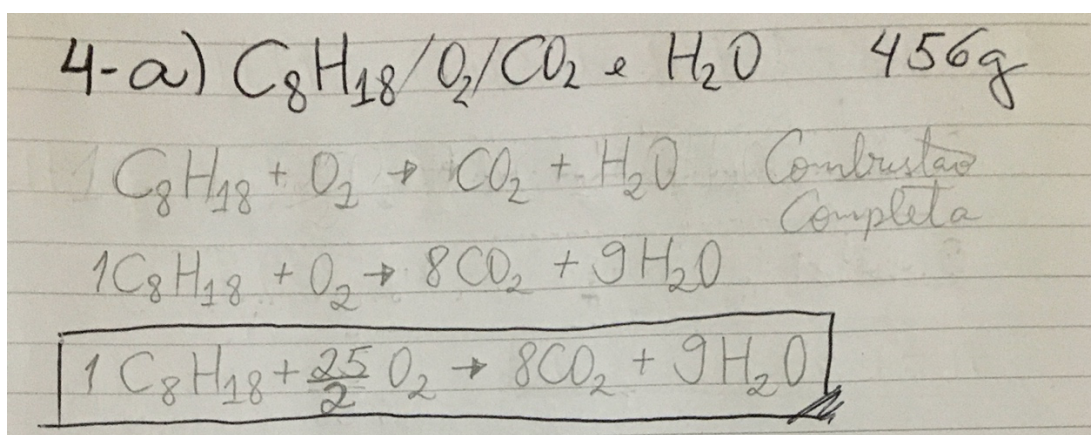 4-a) C₈H₁₈/O₂/CO₂ e H₂O 456g
C₈H₁₈ + O₂ → CO₂ + H₂O Combustão
Completa
1C₈H₁₈ + O₂ → 8CO₂ + 9H₂O
1 C₈H₁₈ + 25/2 O₂ → 8CO₂ + 9H₂O